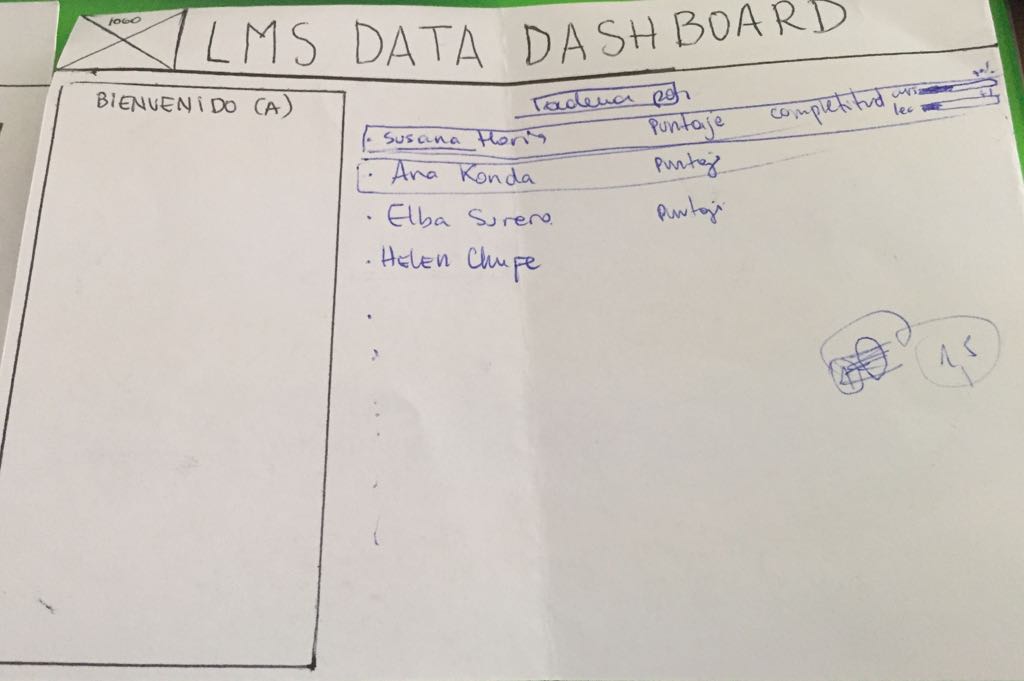 LOGO
LMS DATA DASHBOARD
BIENVENIDO (A)
por
Susana Horia Puntaje completitud
Ana Konda Puntaje
Elba Surero Puntaje
HELEN Chufe